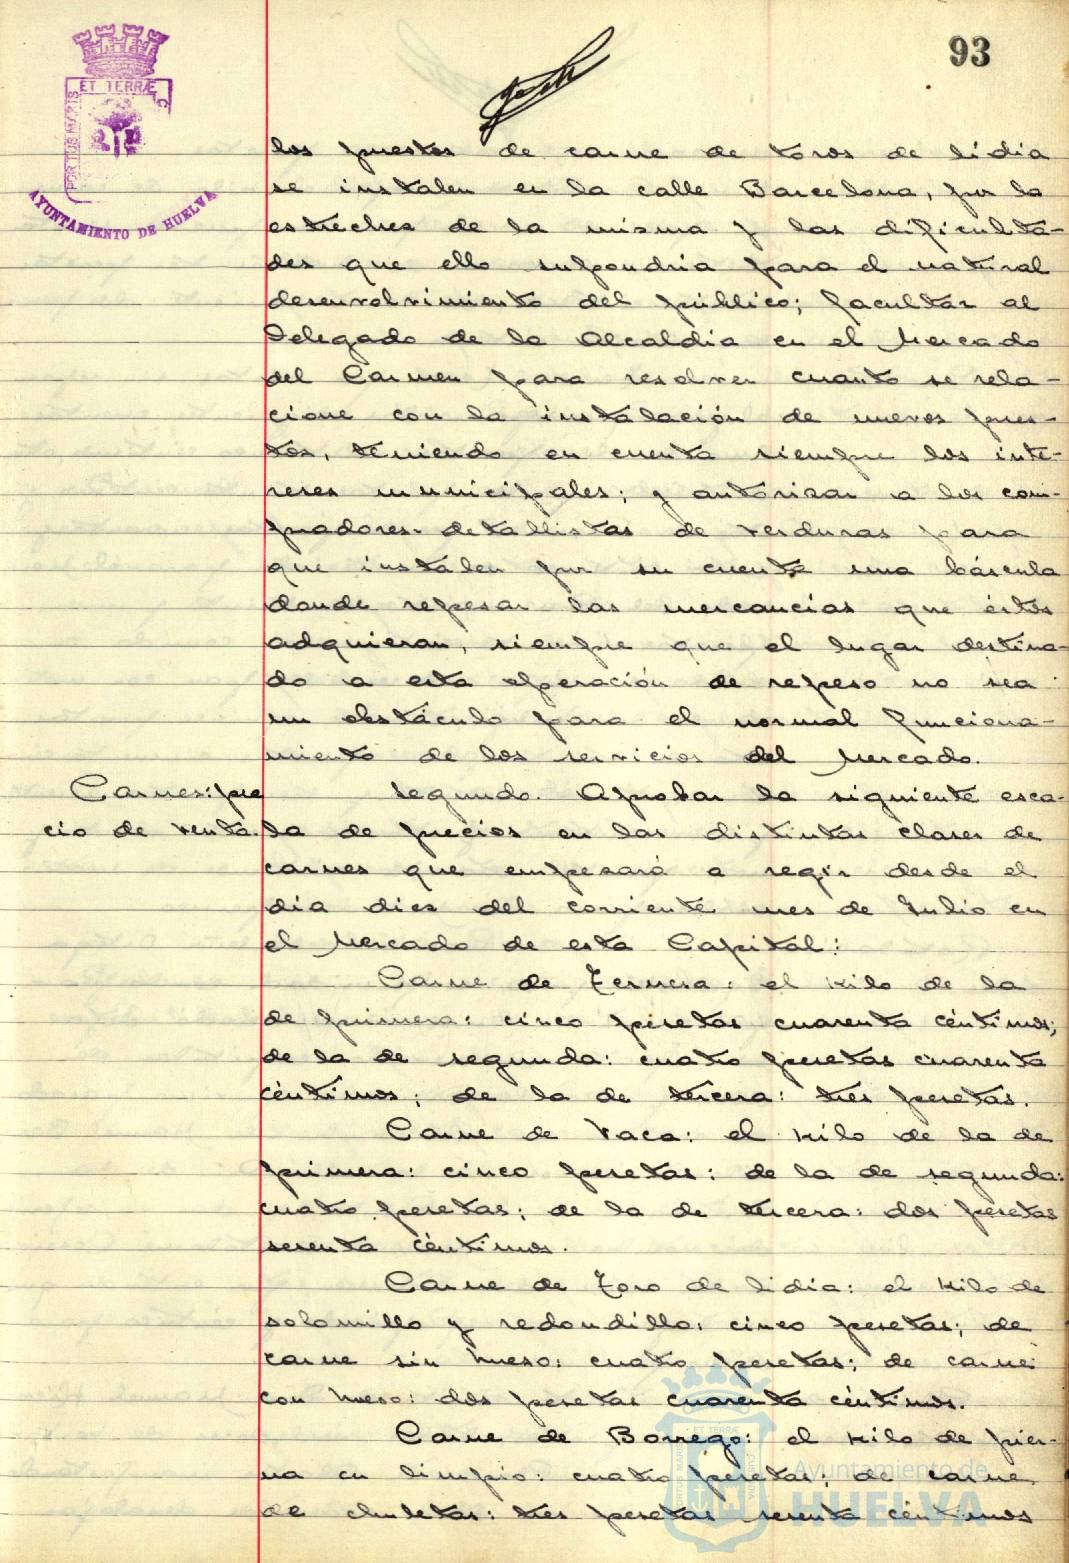 93
ET TERRÆ C
PORTUS MARIS
AYUNTAMIENTO DE HUELVA
los puestos de carne de toros de lidia
se instalen en la calle Barcelona, por la
estrechez de la misma y las dificulta-
des que ello supondria para el natural
desenvolvimiento del público; facultar al
Delegado de la Alcaldia en el Mercado
del Carmen para resolver cuanto se rela-
cione con la instalación de nuevos pues-
tos, teniendo en cuenta siempre los inte-
reses municipales; y autorizar a los com-
pradores-detallistas de verduras para
que instalen por su cuenta una báscula
donde repesar las mercancias que éstos
adquieran, siempre que el lugar destina-
do a esta operación de repeso no sea
un obstáculo para el normal funciona-
miento de los servicios del Mercado.
Carnes: pre
cio de venta.
Segundo. Aprobar la siguiente esca-
la de precios en las distintas clases de
carnes que empezará a regir desde el
dia diez del corriente mes de Julio en
el Mercado de esta Capital:
Carne de Ternera: el kilo de la
de primera: cinco pesetas cuarenta céntimos;
de la de segunda: cuatro pesetas cuarenta
céntimos; de la de tercera: tres pesetas.
Carne de Vaca: el kilo de la de
primera: cinco pesetas; de la de segunda:
cuatro pesetas; de la de tercera: dos pesetas
sesenta céntimos.
Carne de Toro de lidia: el kilo de
solomillo y redondillo: cinco pesetas; de
carne sin hueso: cuatro pesetas; de carne
con hueso: dos pesetas cuarenta céntimos.
Carne de Borrego: el kilo de pier-
na en limpio: cuatro pesetas; de carne
de chuletas: tres pesetas sesenta céntimos
Ayuntamiento de
HUELVA